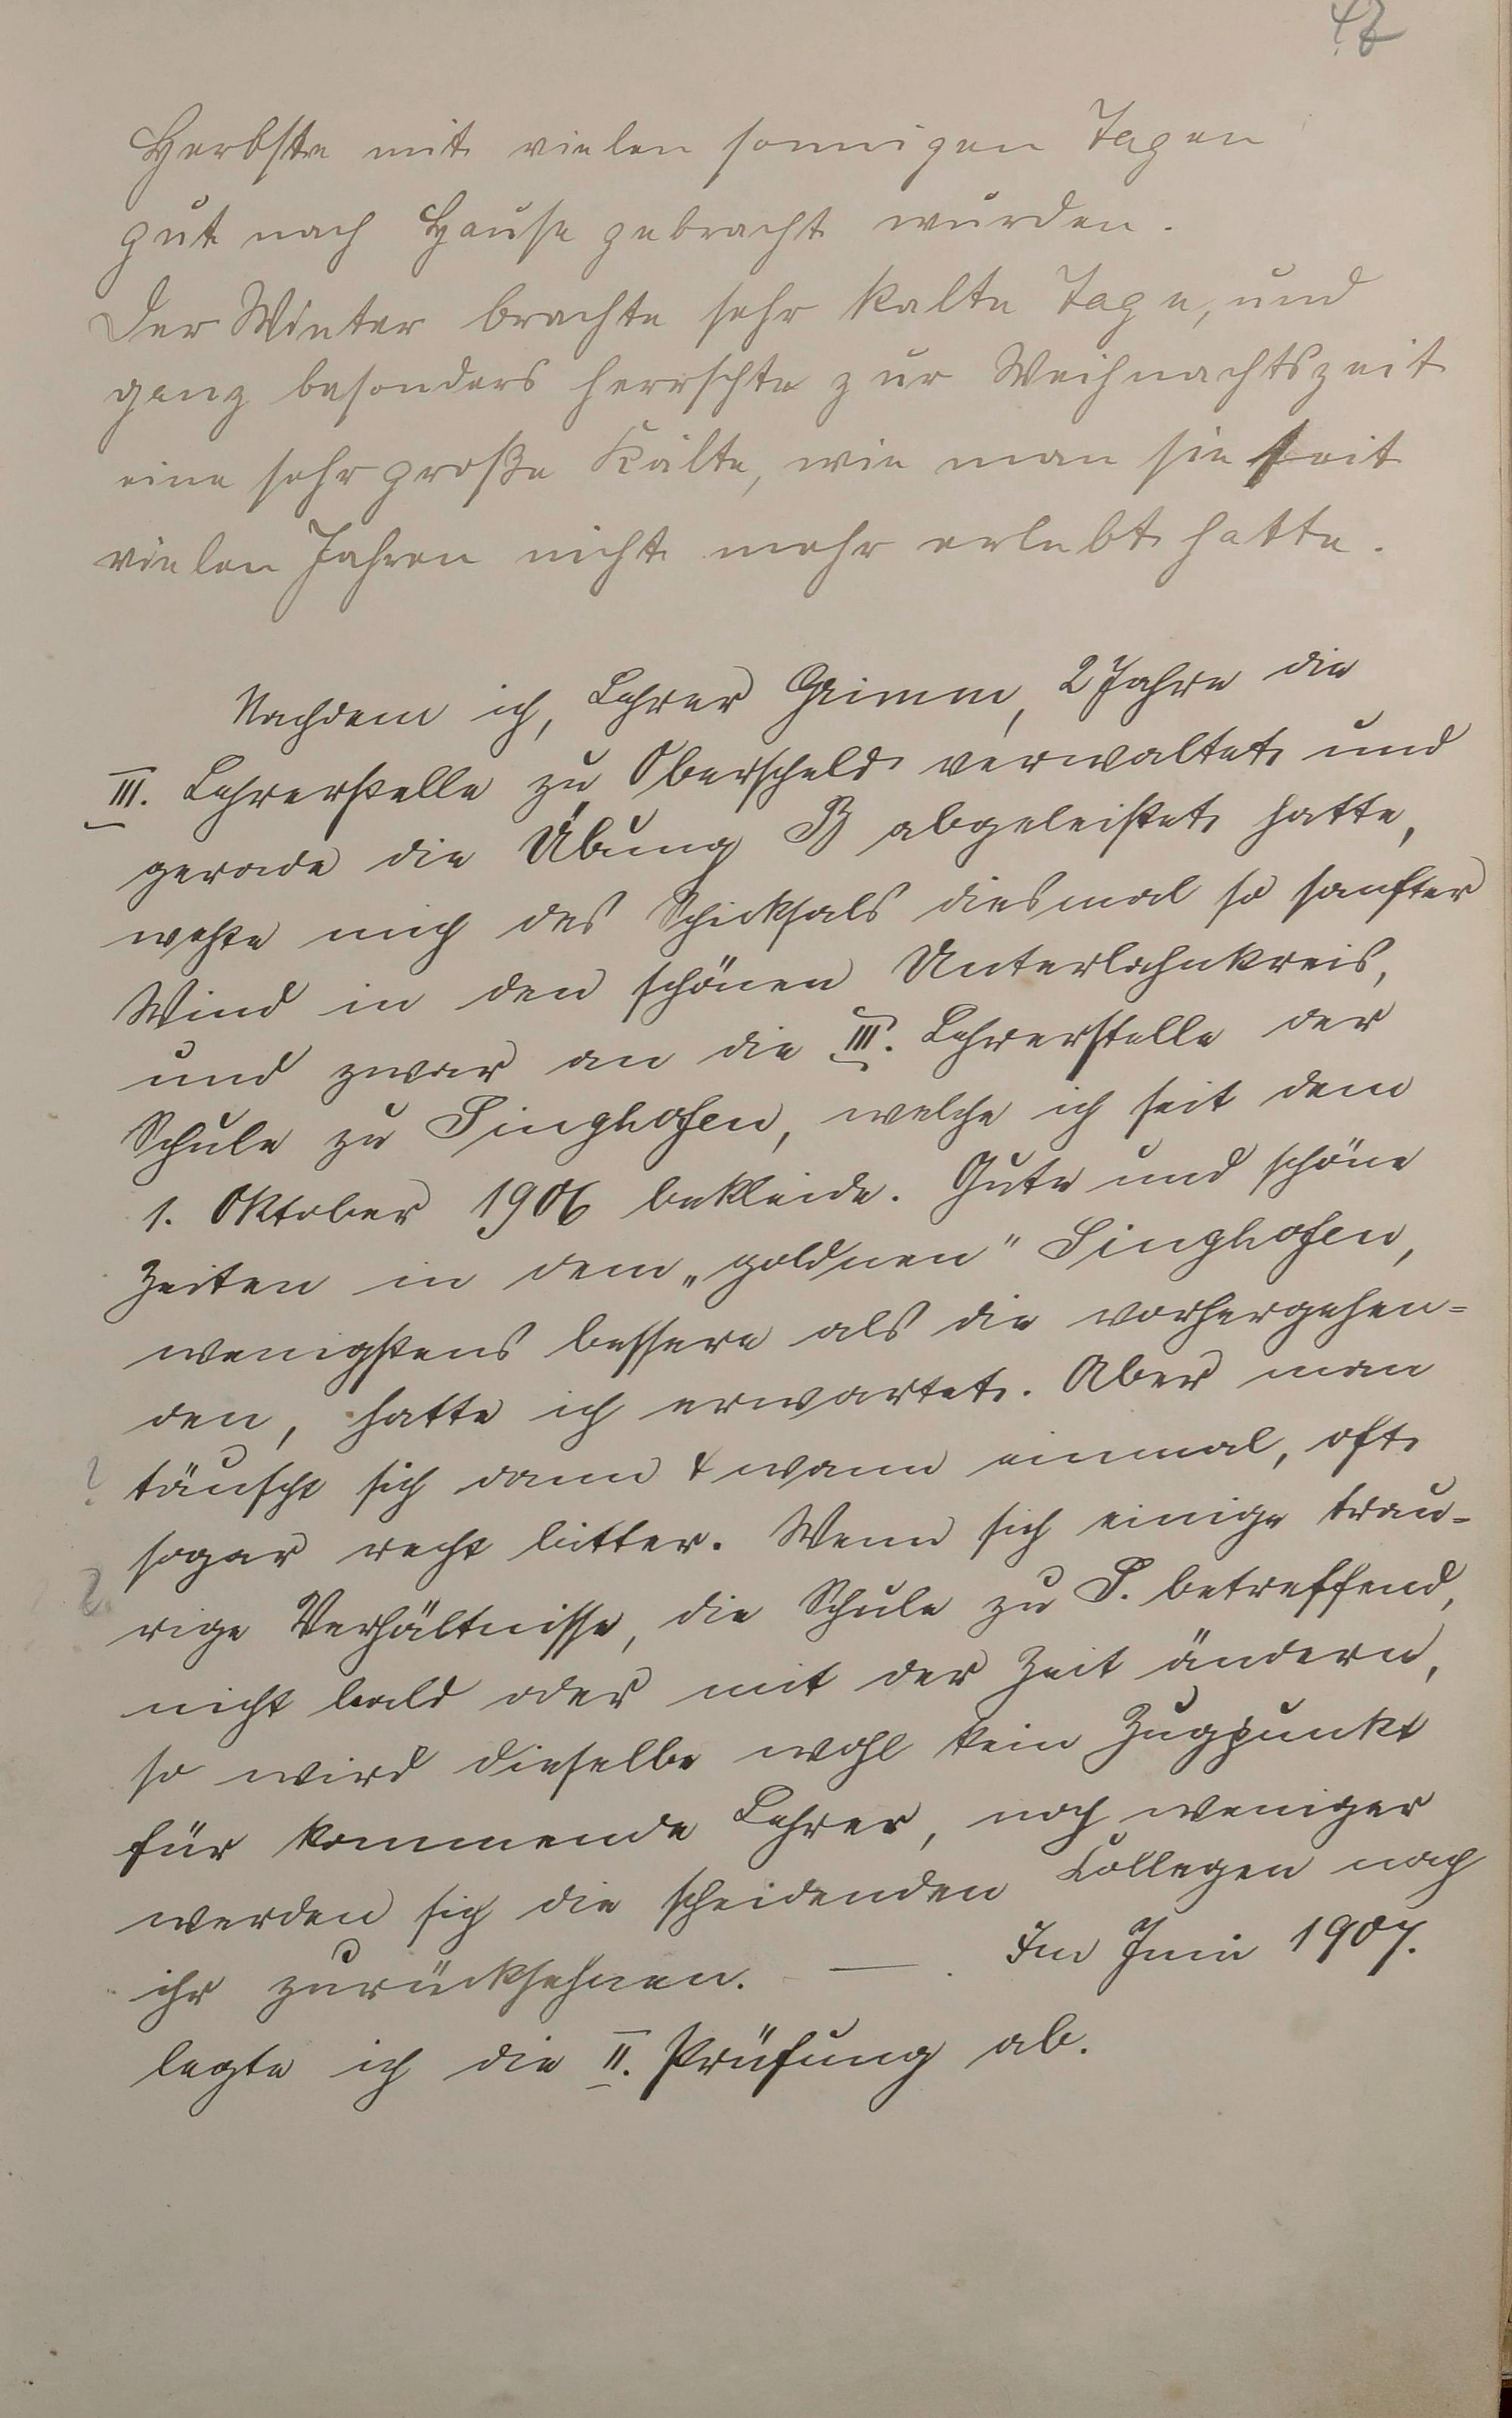 47
Herbste mit vielen sonnigen Tagen
gut nach Hause gebracht wurden.
Der Winter brachte sehr kalte Tage, und
ganz besonders herrschte zur Weihnachtszeit
eine sehr große Kälte, wie man sie seit
vielen Jahren nicht mehr erlebt hatte.
Nachdem ich, Lehrer Grimm, 2 Jahre die
III. Lehrerstelle zu Oberscheld verwaltet und
gerade die Übung B abgeleistet hatte,
wehte mich des Schicksals diesmal so sanfter
Wind in den schönen Unterlahnkreis,
und zwar an die III. Lehrerstelle der
Schule zu Singhofen, welche ich seit dem
1. Oktober 1906 bekleide. Gute und schöne
Zeiten in dem „goldnen" Singhofen,
wenigstens bessere als die vorhergehen=
den, hatte ich erwartet. Aber man
? täuscht sich dann & wann einmal, oft
sogar recht bitter. Wenn sich einige trau=
? rige Verhältnisse, die Schule zu S. betreffend,
nicht bald oder mit der Zeit ändern,
so wird dieselbe wohl kein Zugpunkt
für kommende Lehrer, noch weniger
werden sich die scheidenden Collegen nach
ihr zurücksehnen. — Im Juni 1907.
legte ich die II. Prüfung ab.